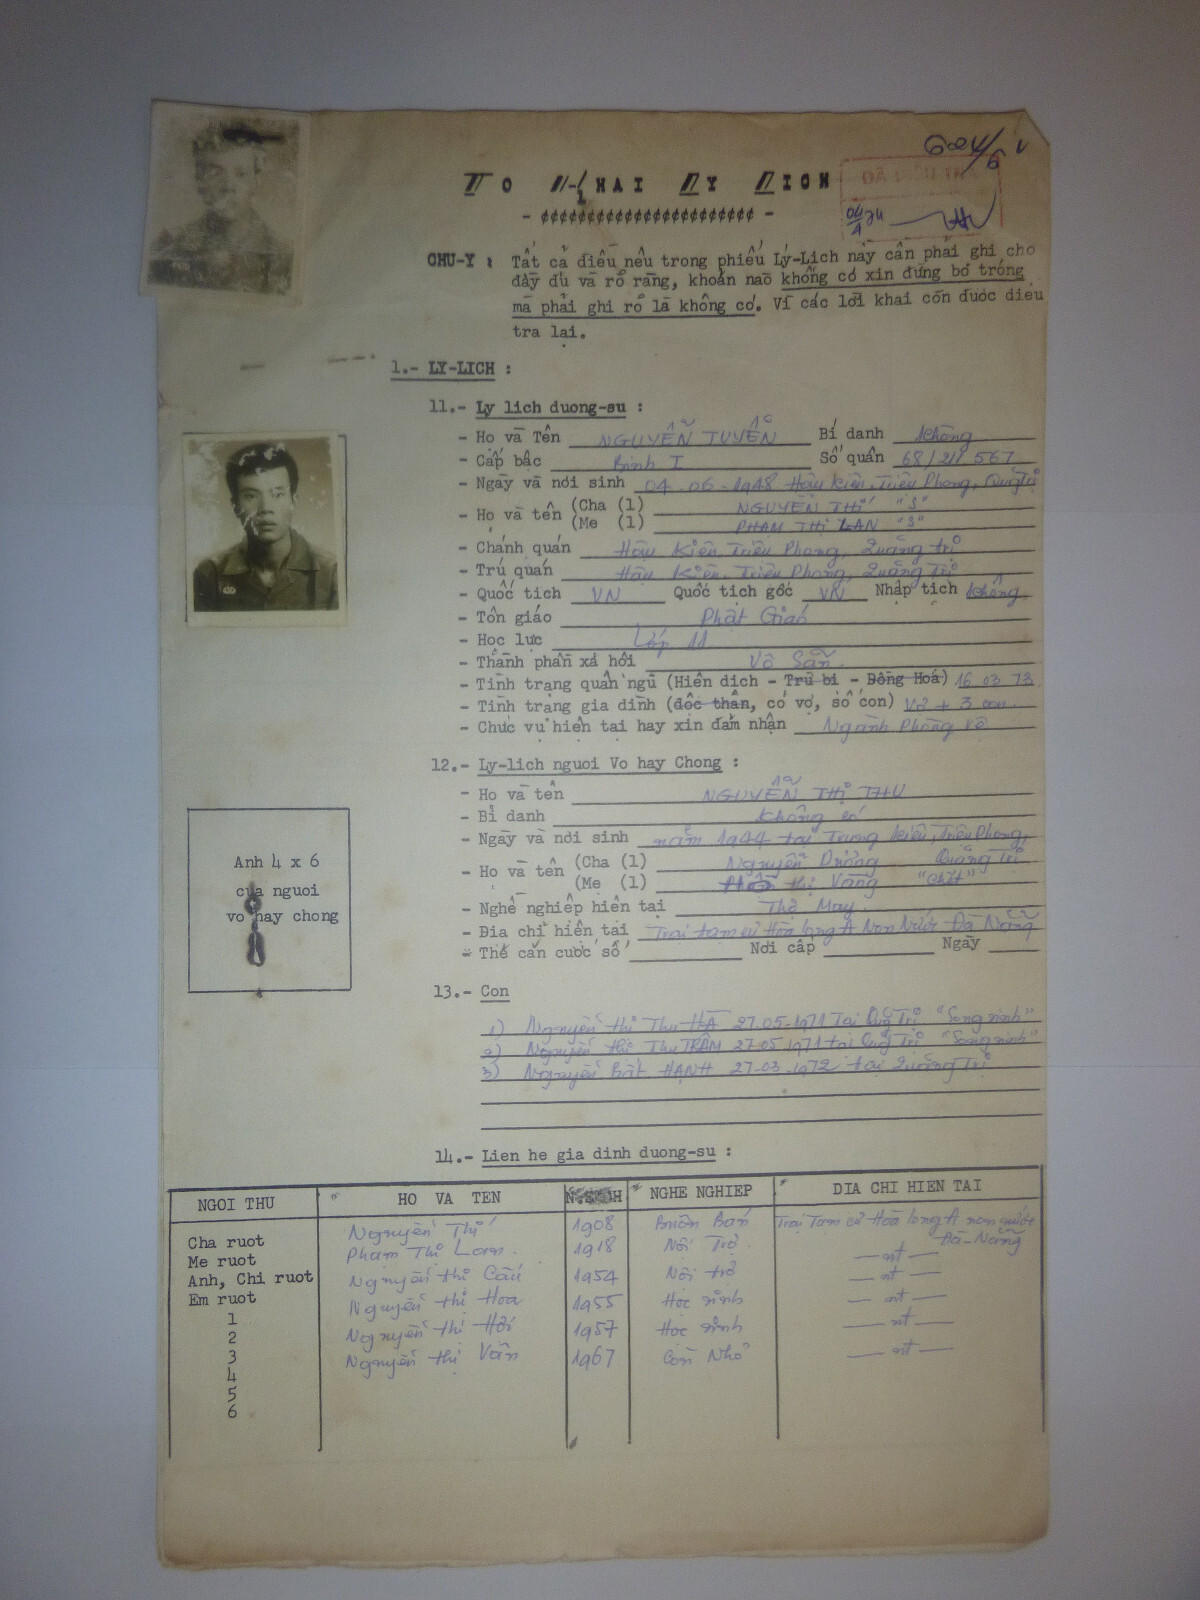 TO KHAI LY LICH
- ¢¢¢¢¢¢¢¢¢¢¢¢¢¢¢¢¢¢¢¢¢¢¢ -
CHU-Y : Tất cả điều nêu trong phiếu Lý-Lich này cần phải ghi cho
đầy đủ và rõ ràng, khoản nào không có xin đừng bỏ trống
mà phải ghi rõ là không có. Vì các lời khai còn được điều
tra lại.
1.- LY-LICH :
11.- Ly lich duong-su :
- Họ và Tên NGUYỄN TUYỂN Bí danh Không
- Cấp bậc Binh I Số quân 68/211 567
- Ngày và nơi sinh 04-06-1948 Hậu Kiên, Triệu Phong, Quảng Trị
- Họ và tên (Cha (1) NGUYỄN THÍ "S"
(Me (1) PHẠM THỊ LAN "S"
- Chánh quán Hậu Kiên, Triệu Phong, Quảng Trị
- Trú quán Hậu Kiên, Triệu Phong, Quảng Trị
- Quốc tịch VN Quốc tịch gốc VN Nhập tịch Không
- Tôn giáo Phật Giáo
- Học lực Lớp 11
- Thành phần xã hội Vô Sản
- Tình trạng quân ngũ (Hiện dịch - Trừ bị - Đồng Hoá) 16 03 73
- Tình trạng gia đình (độc thân, có vợ, số con) Vợ + 3 con
- Chức vụ hiện tại hay xin đảm nhận Ngành Phòng vệ
12.- Ly-lich nguoi Vo hay Chong :
- Họ và tên NGUYỄN THỊ THU
- Bí danh Không có
- Ngày và nơi sinh năm 1944 tại Trung Kiên, Triệu Phong,
- Họ và tên (Cha (1) Nguyễn Dưởng Quảng Trị
(Me (1) thị Vàng "Chết"
- Nghề nghiệp hiện tại Thợ May
- Địa chỉ hiện tại Trại tạm cư Hòa Long A Non Nước Đà Nẵng
- Thẻ căn cước số Nơi cấp Ngày
13.- Con
1) Nguyễn thị Thu HÀ 27-05-1971 Tại Quảng Trị "Song sinh"
2) Nguyễn thị Thu TRÂM 27-05-1971 tại Quảng Trị "Song sinh"
3) Nguyễn Bất HẠNH 27-03-1972 tại Quảng Trị
Anh 4 x 6
cua nguoi
vo hay chong
14.- Lien he gia dinh duong-su :
NGOI THU HO VA TEN N.SINH NGHE NGHIEP DIA CHI HIEN TAI
Cha ruot Nguyễn Thí 1908 Buôn Bán Trại Tạm cư Hòa Long A non nước Đà-Nẵng
Me ruot Phạm Thị Lan 1918 Nội Trợ — nt —
Anh, Chi ruot Nguyễn thị Cầu 1954 Nội trợ — nt —
Em ruot Nguyễn thị Hoa 1955 Học sinh — nt —
1 Nguyễn thị Hới 1957 Học sinh — nt —
2 Nguyễn thị Vân 1967 Còn Nhỏ — nt —
3
4
5
6